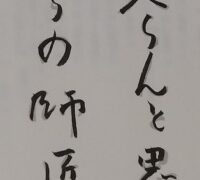 らんと思
の師匠